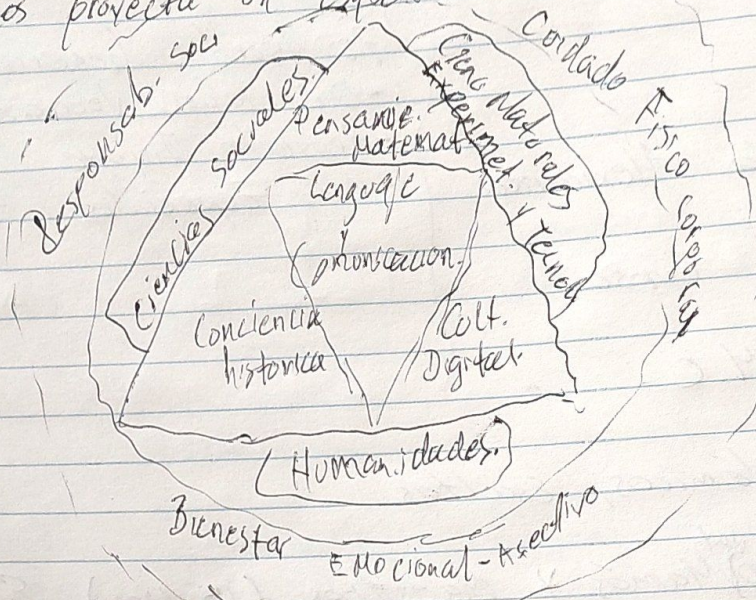 proyecta un
Responsab. Soci
Cuidado
Físico corporal
Ciencias Sociales.
Cienc Naturales
Experimet. y Tecnol
Pensamie.
Matemat
Lenguaje
y
Comunicacion.
Conciencia
historica
Cult.
Digital.
Humanidades.
Bienestar
Emocional-Afectivo